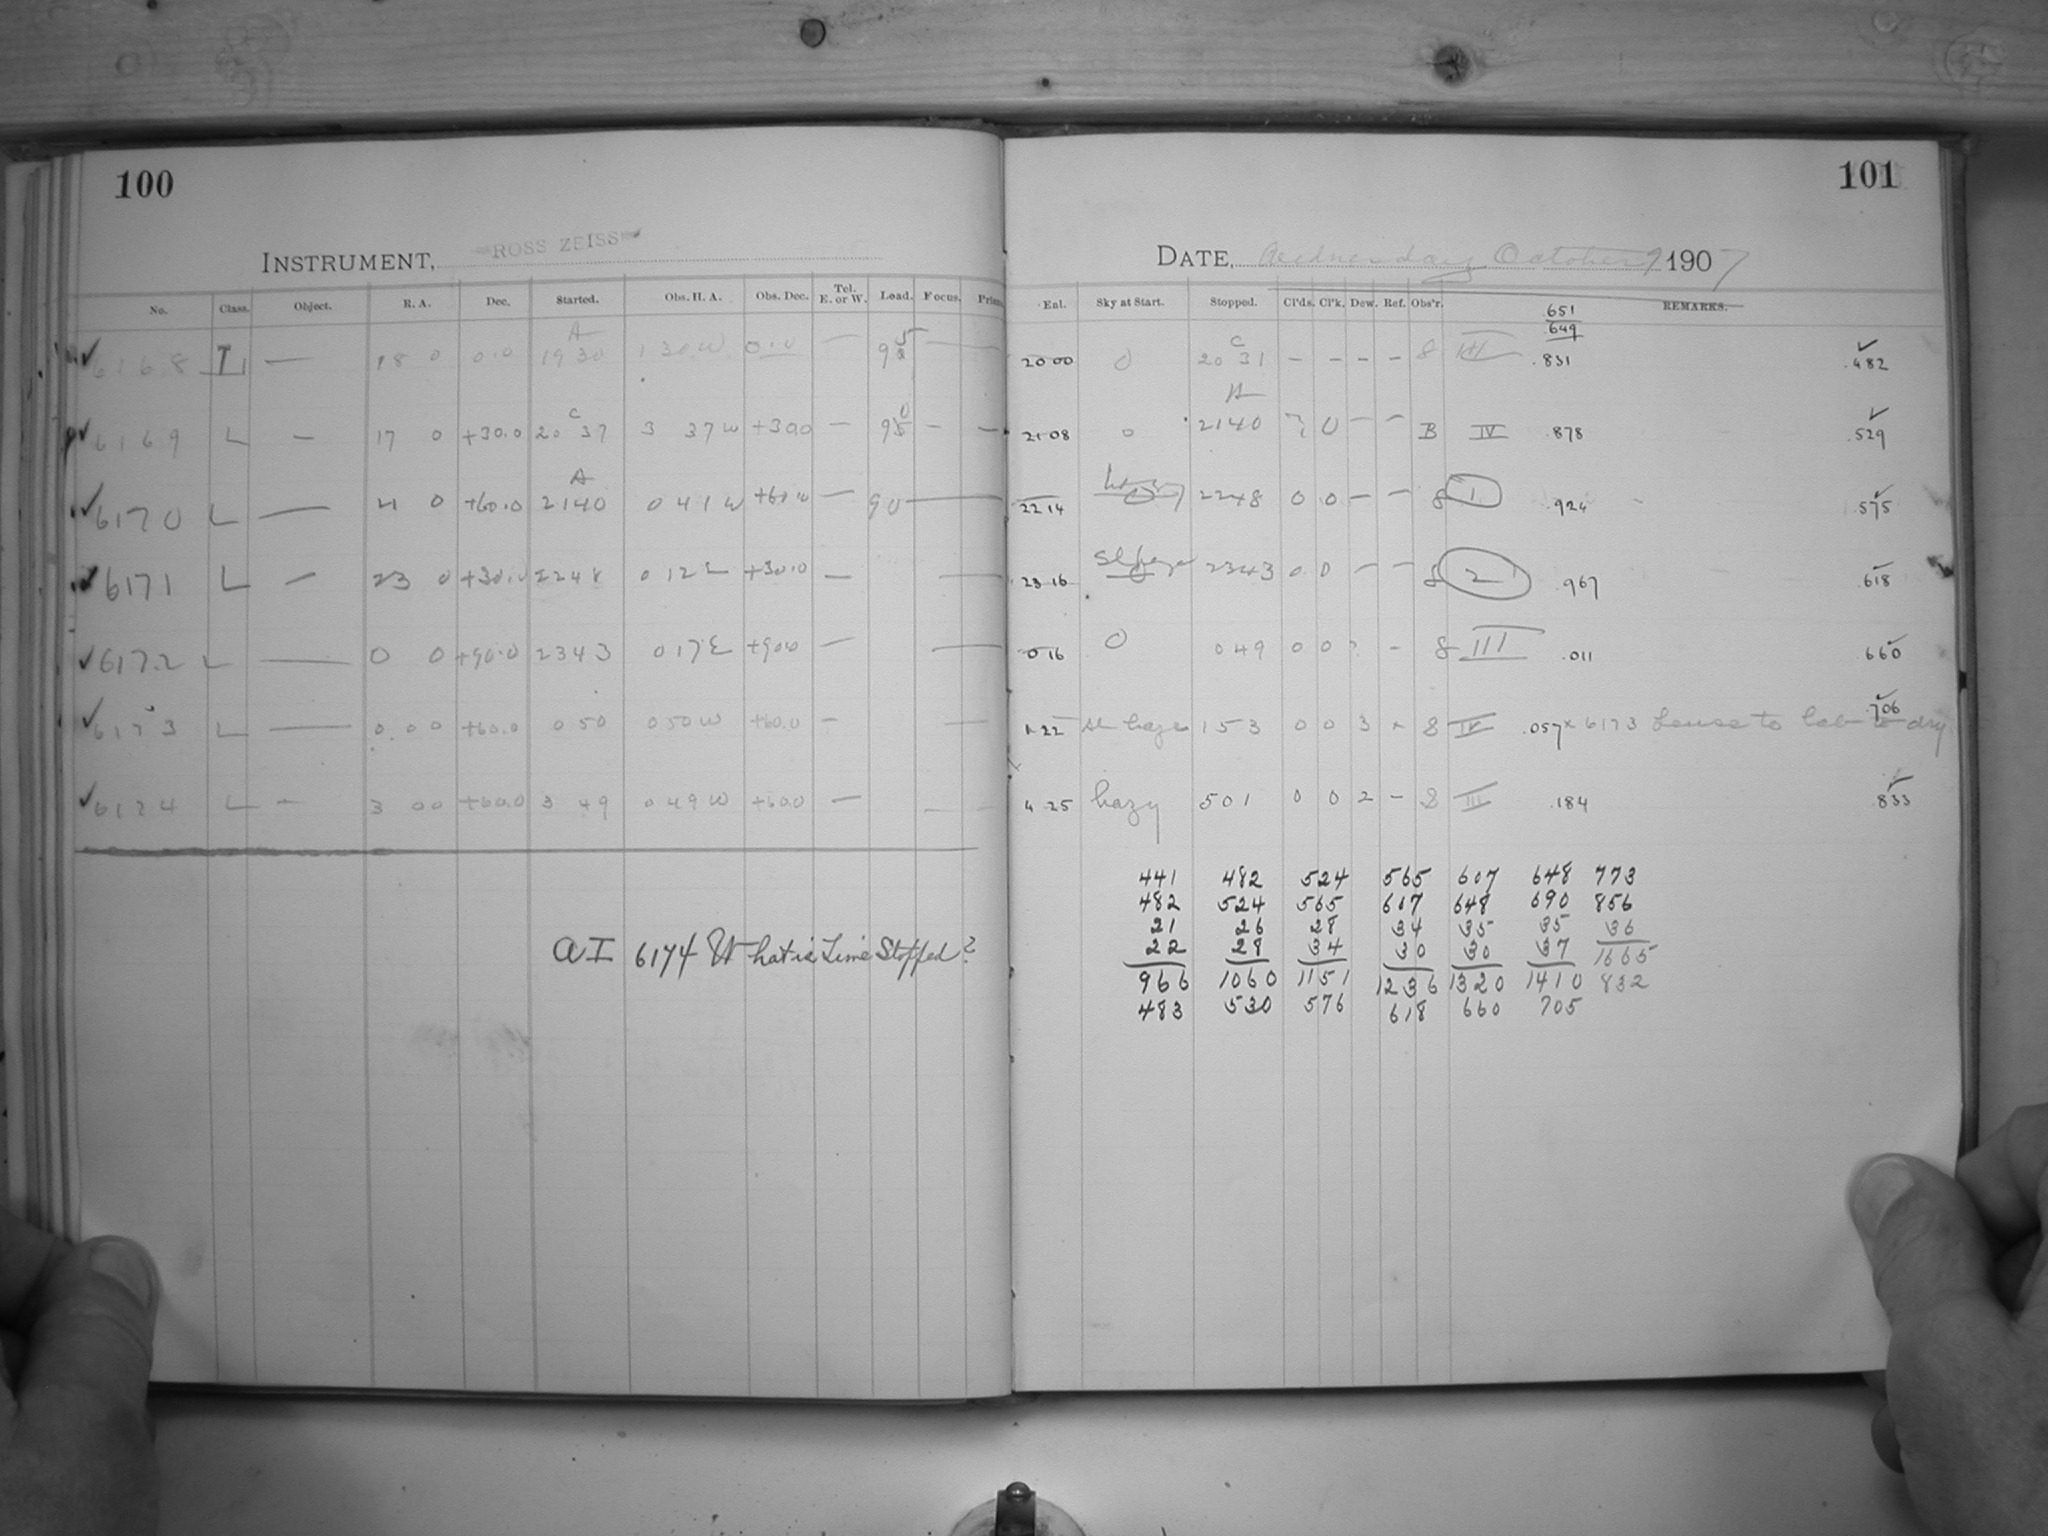 100
INSTRUMENT, ROSS ZEISS
No. Class. Object. R. A. Dec. Started. Obs. H. A. Obs. Dec. Tel. E. or W. Load. Focus.
A
✓ 6168 L — 18 0 0.0 19 30 1 30 W 0.0 — 95 —
C
✓ 6169 L — 17 0 +30.0 20 37 3 37 W +30.0 — 90 — —
A
✓ 6170 L — 21 0 +60.0 21 40 0 41 W +60.0 — 90 —
✓ 6171 L — 23 0 +30.0 22 48 0 12 E +30.0 — —
✓ 6172 L — 0 0 +90.0 23 43 0 17 E +90.0 — —
✓ 6173 L — 0 00 +60.0 0 50 0 50 W +60.0 — —
✓ 6174 L — 3 00 +60.0 3 49 0 49 W +60.0 — — —
A I 6174 What is Time Stopped?
101
DATE, Wednesday October 9 1907
Enl. Sky at Start. Stopped. Cl'ds. Cl'k. Dew. Ref. Obs'r. REMARKS.
.651
.649
C
20 00 0 20 31 – – – – 8 III .831 ✓ .482
A
21 08 0 21 40 0 – – B IV .878 ✓ .529
22 14 hazy 22 48 0 0 – – 8 1 .924 ✓ .575
23 16 Sl haze 23 43 0 0 – – 8 2 .967 ✓ .618
0 16 0 0 49 0 0 ? – 8 III .011 ✓ .660
1 22 sl haze 1 53 0 0 3 × 8 IV .057 × 6173 Lense to lab to dry ✓ .706
4 25 hazy 5 01 0 0 2 – 8 III .184 ✓ .833
441 482 524 565 607 648 773
482 524 565 607 648 690 856
21 26 28 34 35 35 36
22 28 34 30 30 37 1665
966 1060 1151 1236 1320 1410 832
483 530 576 618 660 705